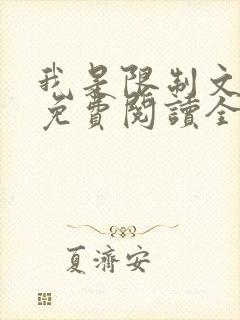 我是限制文
免費閱讀全
夏濟安